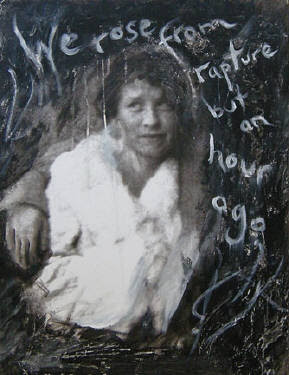 We rose from
rapture
but
an
hour
ago